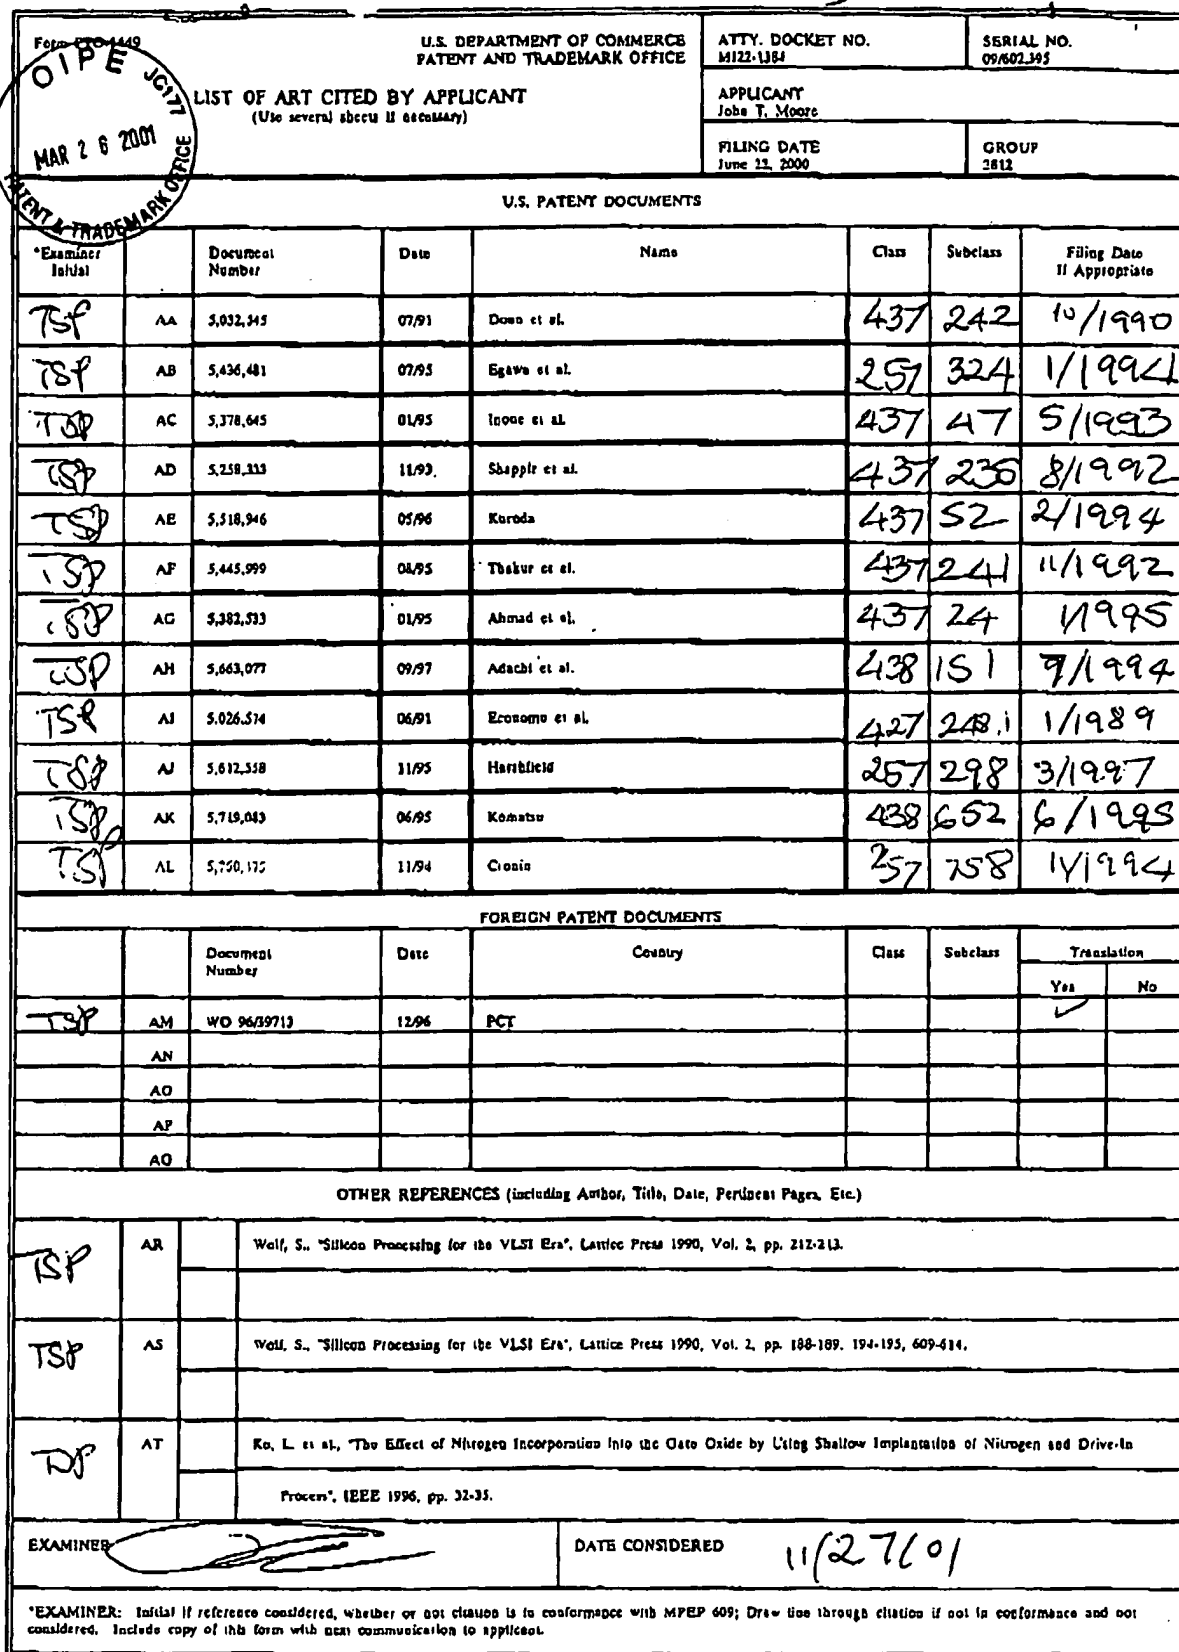 Form PTO-1449
U.S. DEPARTMENT OF COMMERCE
PATENT AND TRADEMARK OFFICE
ATTY. DOCKET NO.
MI22-1384
SERIAL NO.
09/602,395
OIPE JC177
MAR 26 2001
PATENT & TRADEMARK OFFICE
LIST OF ART CITED BY APPLICANT
(Use several sheets if necessary)
APPLICANT
John T. Moore
FILING DATE
June 22, 2000
GROUP
2812
U.S. PATENT DOCUMENTS
*Examiner Initial Document Number Date Name Class Subclass Filing Date If Appropriate
TSP AA 5,032,545 07/91 Doan et al. 437 242 10/1990
TSP AB 5,436,481 07/95 Egawa et al. 257 324 1/1994
TSP AC 5,378,645 01/95 Inoue et al. 437 47 5/1993
TSP AD 5,258,333 11/93 Shappir et al. 437 235 8/1992
TSP AE 5,518,946 05/96 Kuroda 437 52 2/1994
TSP AF 5,445,999 08/95 Thakur et al. 437 241 11/1992
TSP AG 5,382,533 01/95 Ahmad et al. 437 24 1/1995
TSP AH 5,663,077 09/97 Adachi et al. 438 151 9/1994
TSP AI 5,026,574 06/91 Economu et al. 427 248.1 1/1989
TSP AJ 5,612,558 11/95 Harshfield 257 298 3/1997
TSP AK 5,719,083 06/95 Komatsu 438 652 6/1995
TSP AL 5,760,475 11/94 Cronin 257 758 11/1994
FOREIGN PATENT DOCUMENTS
Document Number Date Country Class Subclass Translation
Yes No
TSP AM WO 96/39713 12/96 PCT ✓
AN
AO
AP
AQ
OTHER REFERENCES (including Author, Title, Date, Pertinent Pages, Etc.)
TSP AR Wolf, S., "Silicon Processing for the VLSI Era", Lattice Press 1990, Vol. 2, pp. 212-213.
TSP AS Wolf, S., "Silicon Processing for the VLSI Era", Lattice Press 1990, Vol. 2, pp. 188-189, 194-195, 609-614.
TSP AT Ko, L. et al., "The Effect of Nitrogen Incorporation into the Gate Oxide by Using Shallow Implantation of Nitrogen and Drive-In
Process", IEEE 1996, pp. 32-35.
EXAMINER
DATE CONSIDERED 11/27/01
*EXAMINER: Initial if reference considered, whether or not citation is in conformance with MPEP 609; Draw line through citation if not in conformance and not
considered. Include copy of this form with next communication to applicant.